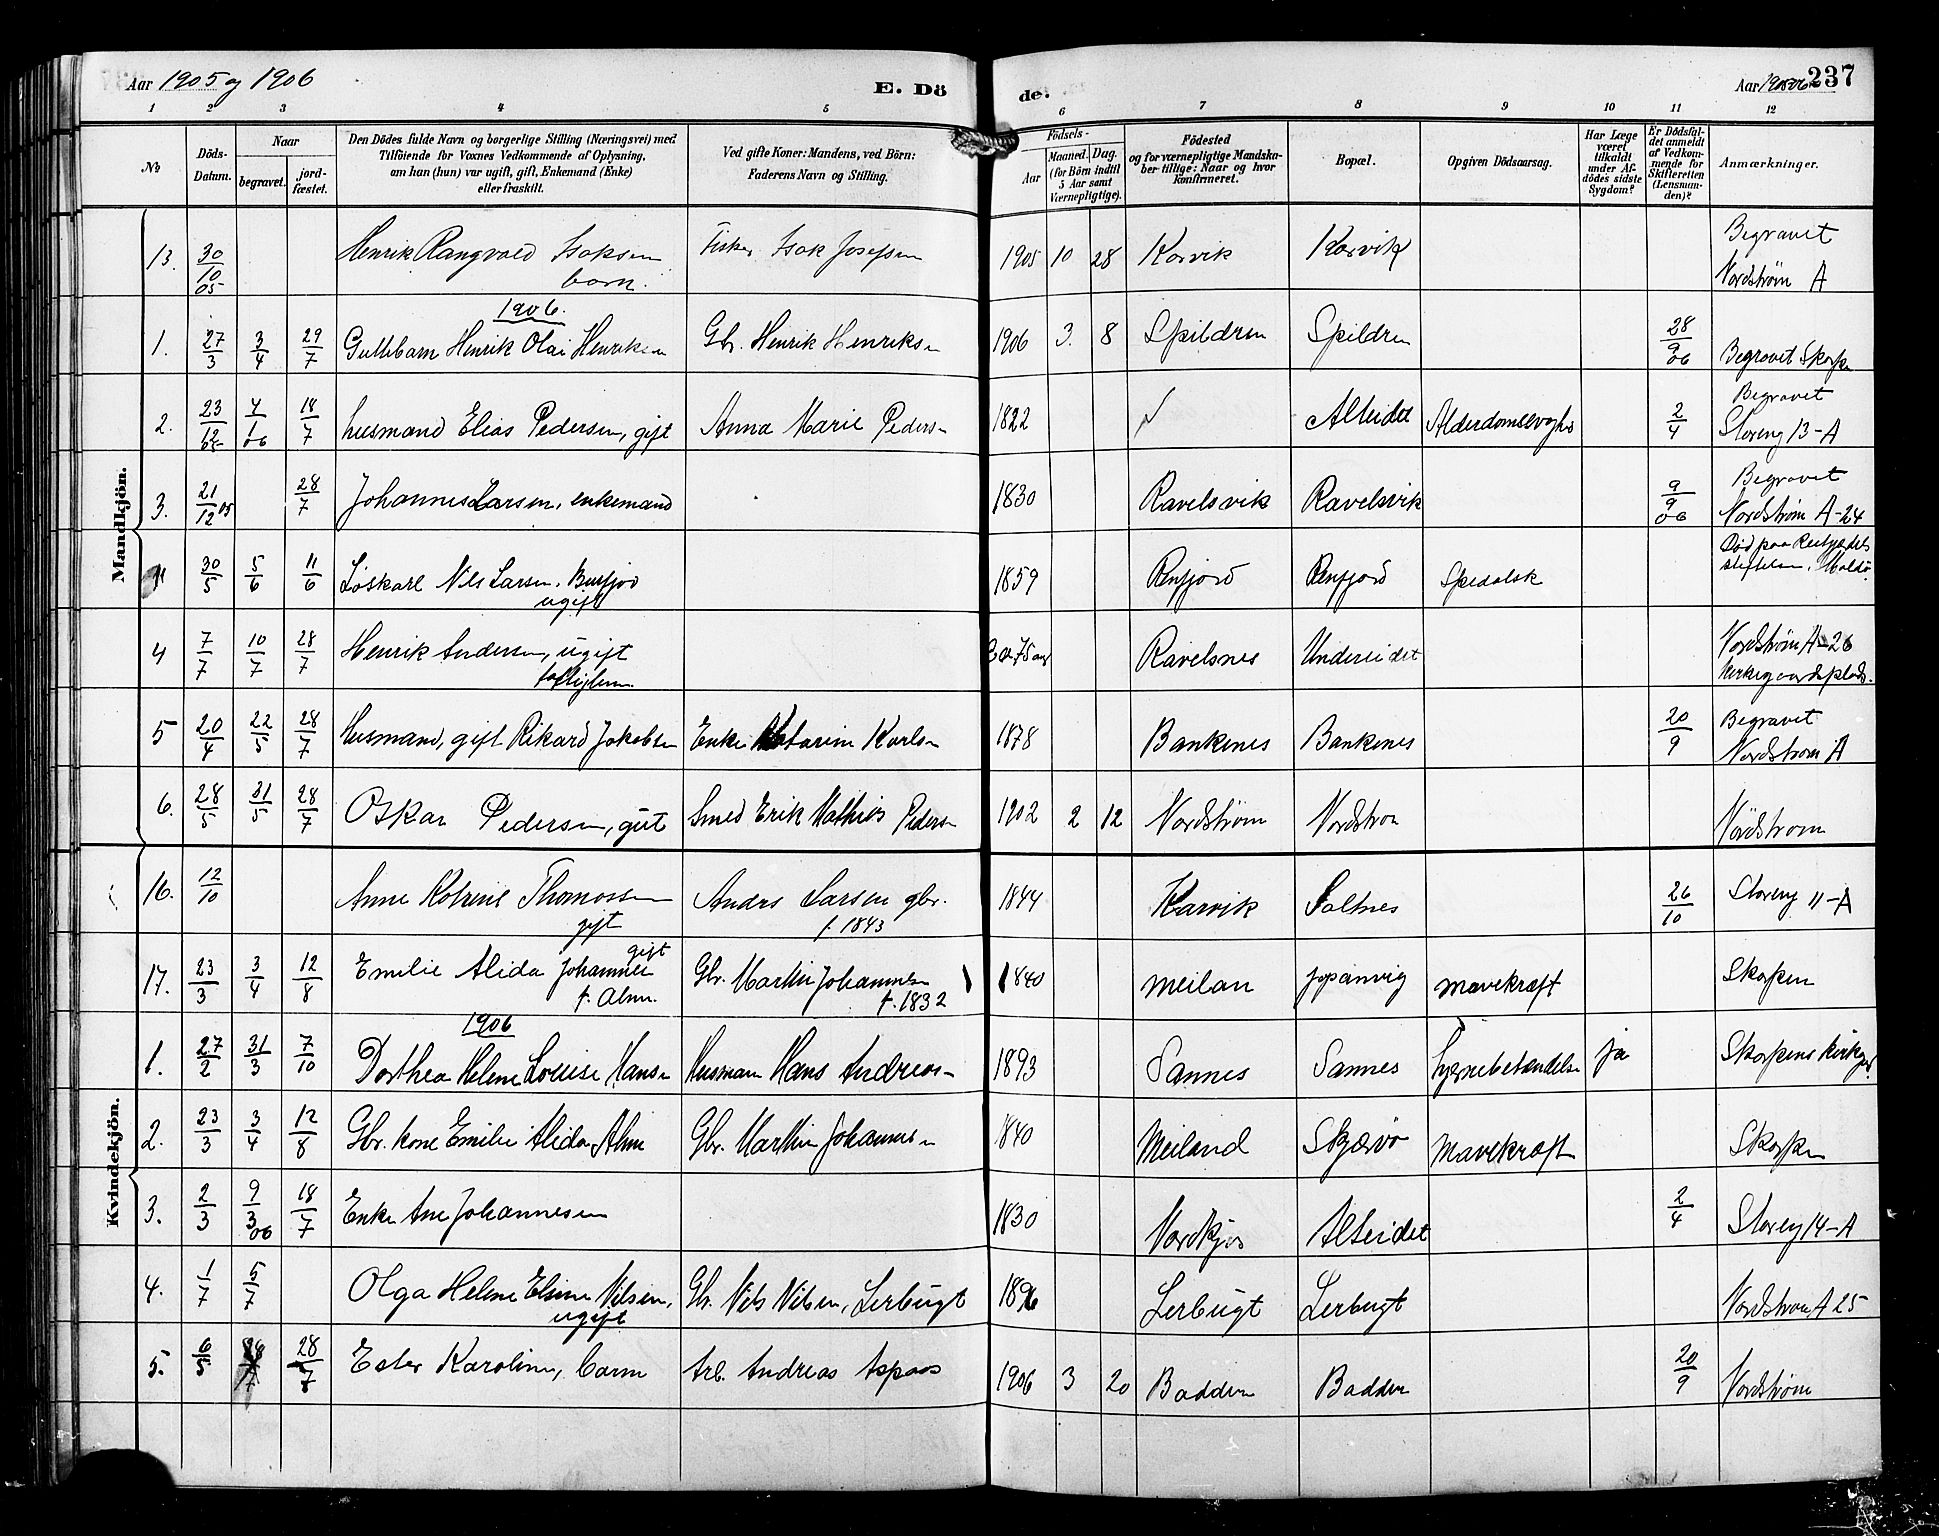 Aar 1905 og 1906
E. Dö
de.
Aar 1905-06 237
1 2 3 4 5 6 7 8 9 10 11 12
No
Döds-Datum.
Naar
begravet.
jord-fæstet.
Den Dödes fulde Navn og borgerlige Stilling (Næringsvei) med
Tilföiende for Voxnes Vedkommende af Oplysning,
om han (hun) var ugift, gift, Enkemand (Enke)
eller fraskilt.
Ved gifte Koner: Mandens, ved Börn:
Faderens Navn og Stilling.
Födsels-
Aar
Maaned. Dag.
(for Börn indtil
5 Aar samt
Værnepligtige).
Födested
og for værnepligtige Mandska-
ber tillige: Naar og hvor
konfirmeret.
Bopæl.
Opgiven Dödsaarsag.
Har Læge
været
tilkaldt
under Af-
dödes sidste
Sygdom?
Er Dödsfal-
det anmeldt
af Vedkom-
mende for
Skifteretten
(Lensman-
den)?
Anmærkninger.
Mandkjön.
13. 30/10 05 Henrik Rangvald Isaksen barn. Fisker Isak Josefsen 1905 10 28 Korvik Korvik Begravet Nordstrøm A
1906.
1. 27/3 3/4 29/7 Guttebarn Henrik Olai Henriksen Gbr. Henrik Henriksen 1906 3. 8 Spildren Spildren 28/9 06 Begravet Skorpen
2. 23/12 05 4/1 06 18/7 husmand Elias Pedersen, gift Anna Marie Peders- 1822 Alteidet Alderdomssvaghed 2/4 Begravet Storeng 13-A
3. 21/12 05 28/7 Johannes Larsen, enkemand 1830 Ravelsvik Ravelsvik 9/9 06 Begravet Nordstrøm A-24
30/5 5/6 11/6 Løskarl Nils Larsen, Burfjord ugift 1859 Spedalsk Død paa Reitgjerdets stiftelsen,
4 7/7 10/7 28/7 Henrik Andersen, ugift fattiglem. Ca 75 aar Ravelsnes Undereidet Nordstrøm A-26 kirkegaardsplads.
5 20/4 22/5 28/7 Husmand, gift Rikard Jakobsen Enke Katarine Karls- 1878 Bankenes Bankenes 20/9 Begravet Nordstrøm A
6. 28/5 31/5 28/7 Oskar Pedersen, gut Smed Erik Mathias Pedersen 1902 2 12 Nordstrøm Nordstrøm Nordstrøm
Kvindekjön.
16. 12/10 Anne Katrine Thomassen gift Anders Larsen gbr. f. 1843 1844 Karvik Saltnes 26/10 Storeng 11-A
17. 23/3 3/4 12/8 Emilie Alida Johannes- gift f. Alm. Gbr. Martin Johannesen f. 1832 1840 Meilan mavekræft Skorpen
1906
1. 27/2 31/3 7/10 Dorthea Helene Louise Hansen Husmann Hans Andreas- 1893 Sannes Sannes Hjernebetændelse ja Skorpens kirkegd.
2. 23/3 3/4 12/8 Gbr. kone Emilie Alida Alm Gbr. Martin Johannesen 1840 Meiland Skjærvø Mavekræft Skorpen
3. 2/3 9/3 06 18/7 Enke Ane Johannesen 1830 Alteidet 2/4 Storeng 14-A
4. 1/7 5/7 Olga Helene Elsine Nilsen, ugift Gbr. Nils Nilsen, Lerbugt 1896 Lerbugt Lerbugt Nordstrøm A 25
5. 28/7 Ester Karoline, barn Arb. Andreas Aspaas 1906 3 20 Badderen Badderen 20/9 Nordstrøm